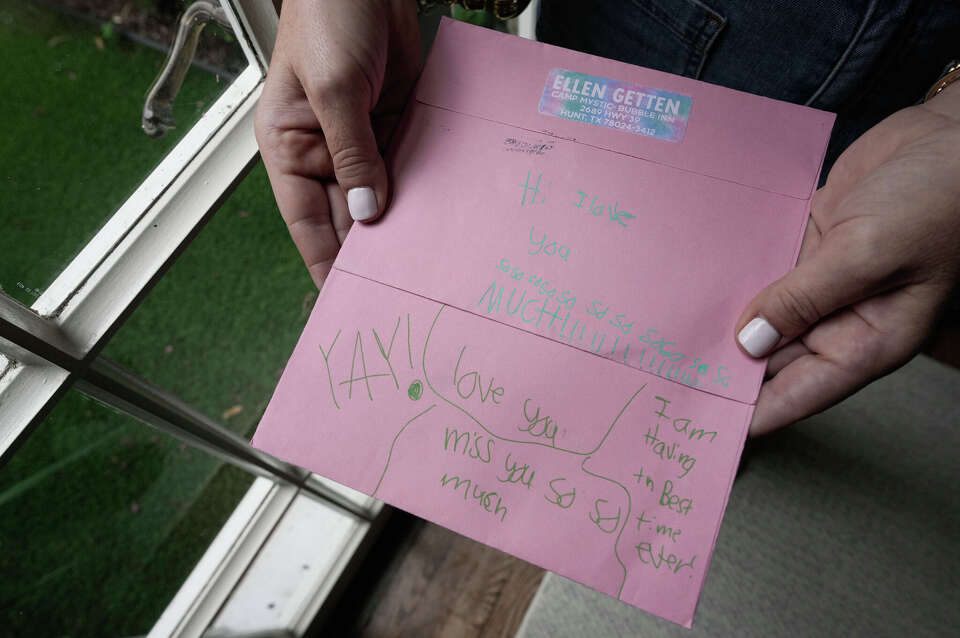 ELLEN GETTEN
CAMP MYSTIC-BUBBLE INN
2689 HWY 39
HUNT, TX 78024-3412
Hi I love
you
so so so so so so so so so so so
MUCH!!!!!!!!!!!!!!
YAY!
love you
miss you so so
much
I am
Having
tn Best
time
ever!